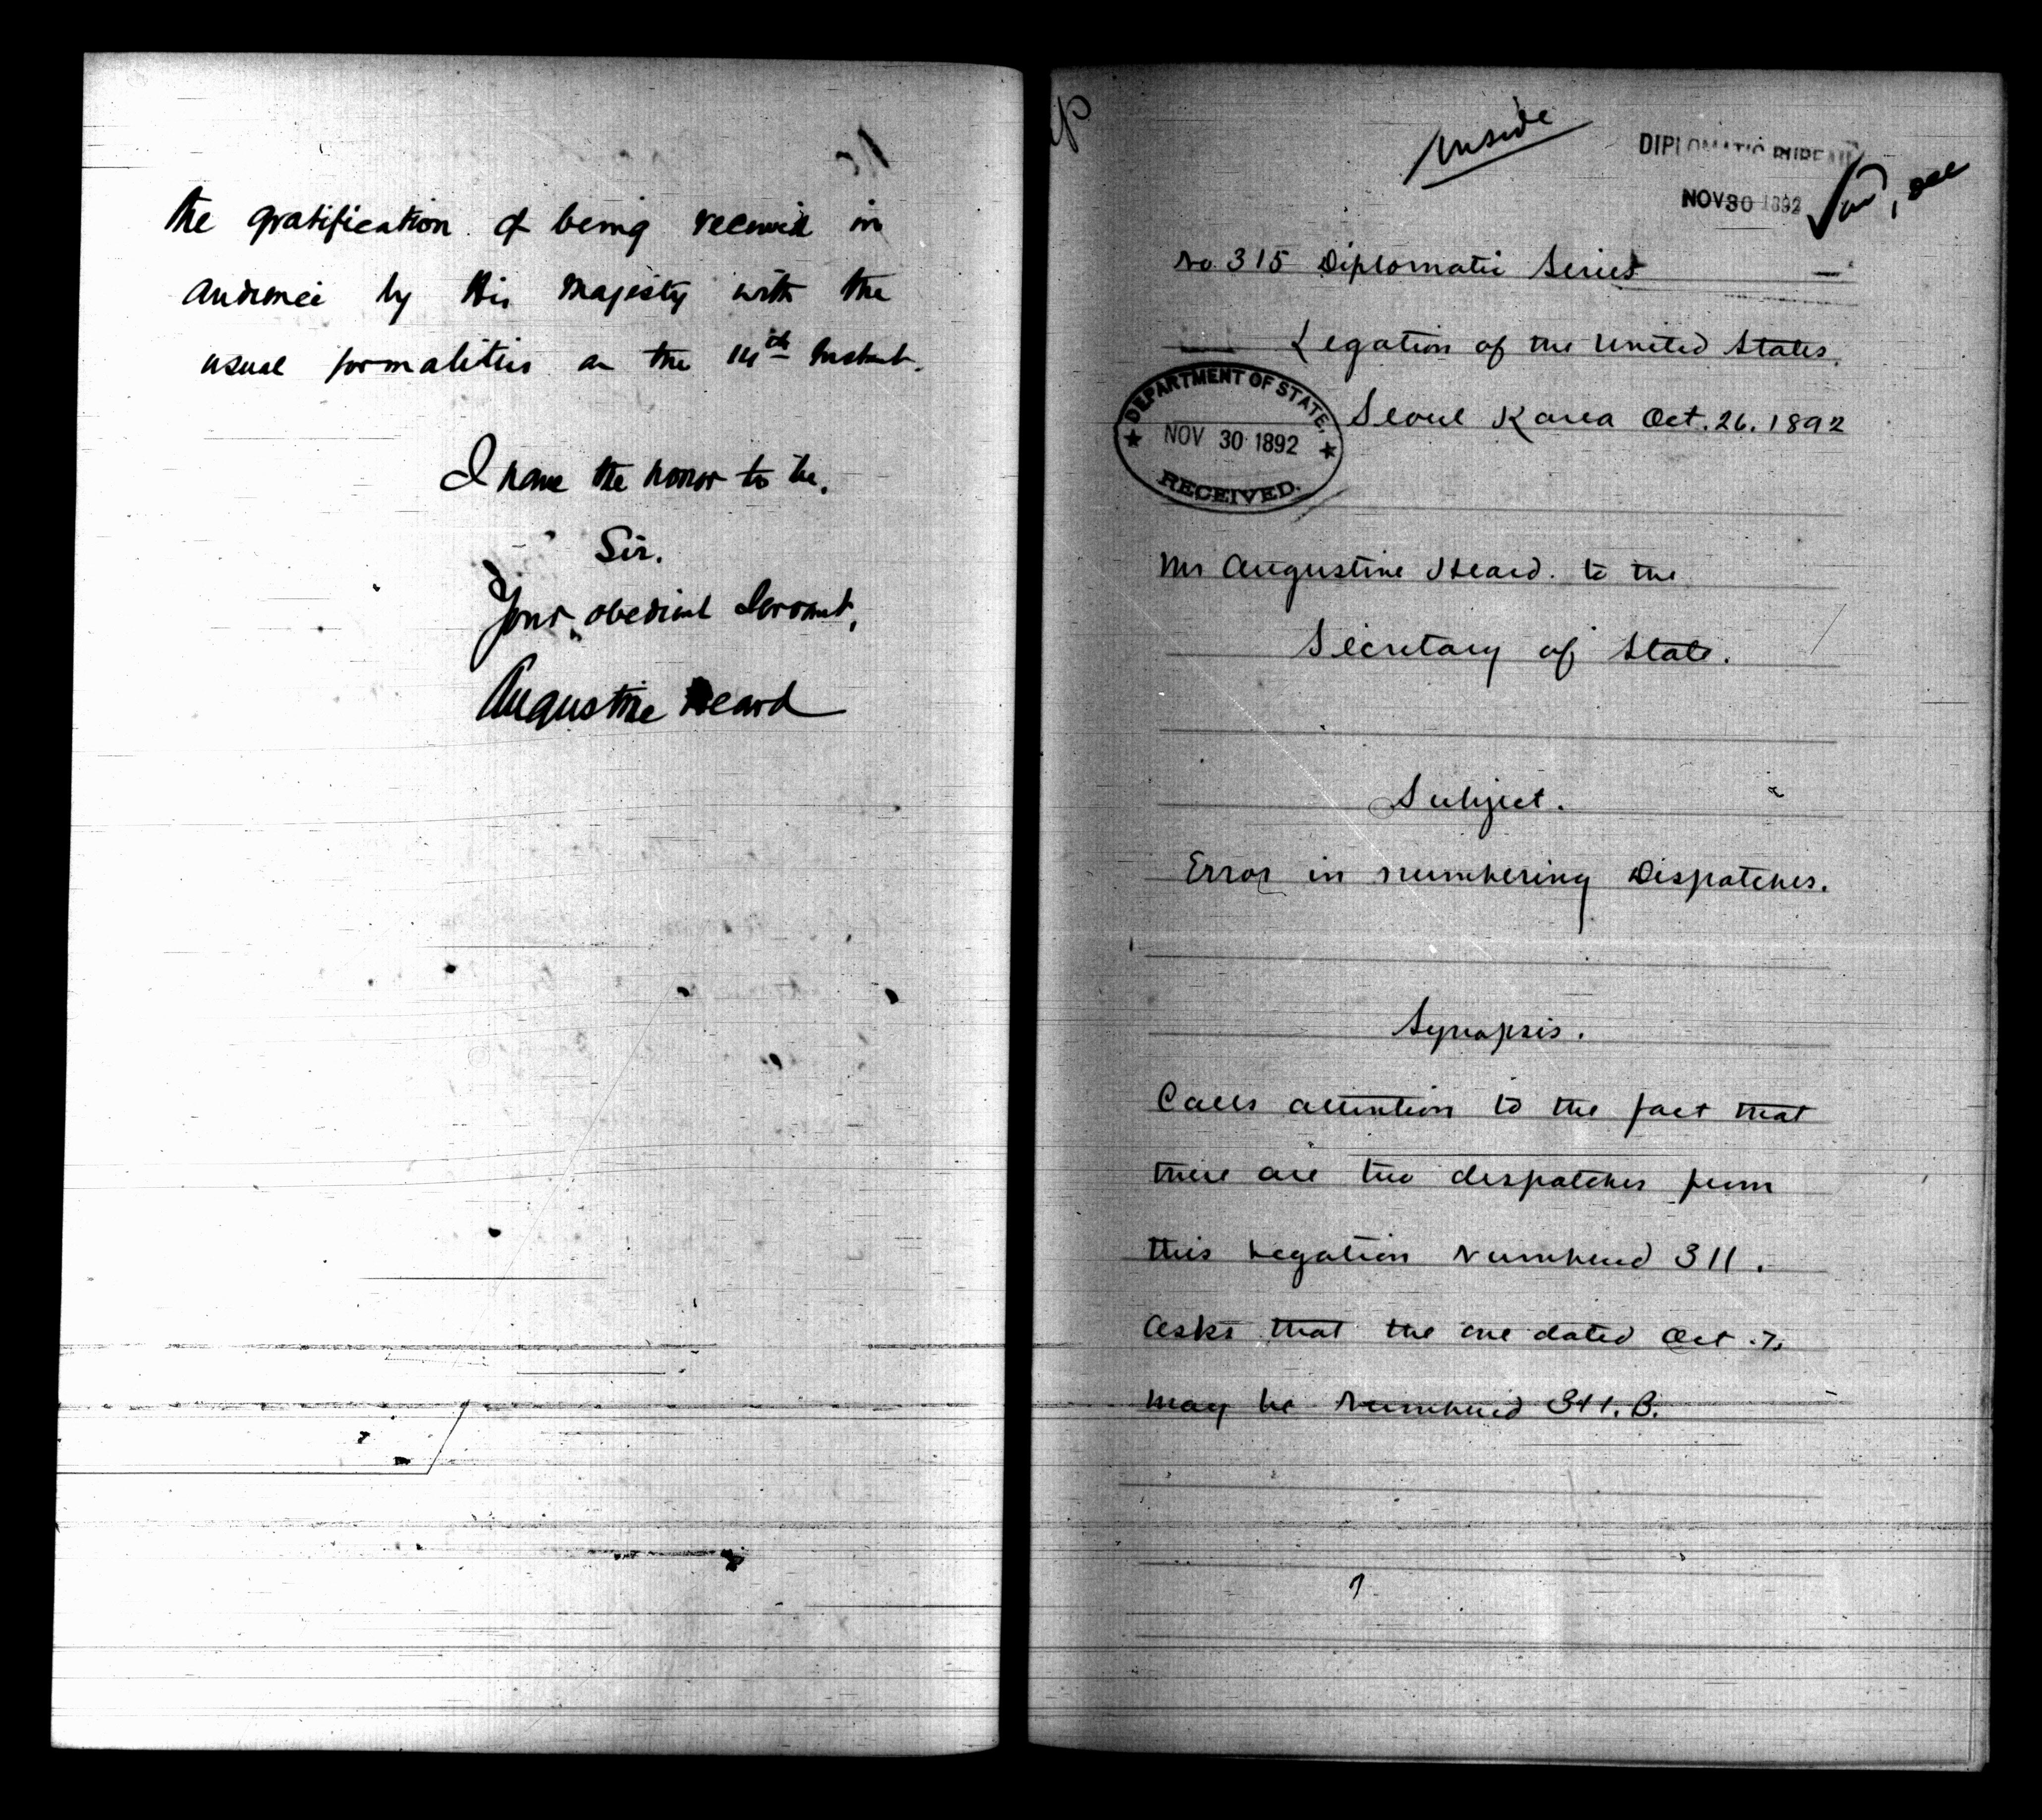 the gratification of being received in
audience by His Majesty with the
usual formalities on the 14th Instant.
I have the honor to be,
Sir.
Your obedient Servant,
Augustine Heard
Inside
DIPLOMATIC BUREAU
NOV 30 1892
No. 315 Diplomatic Series
Legation of the United States.
Seoul Korea Oct. 26. 1892
DEPARTMENT OF STATE,
NOV 30 1892
RECEIVED.
Mr Augustine Heard. to the
Secretary of State.
Subject.
Error in numbering Dispatches.
Synopsis.
Calls attention to the fact that
there are two dispatches from
this Legation Numbered 311.
Asks that the one dated Oct. 7,
may be Numbered 311. B.